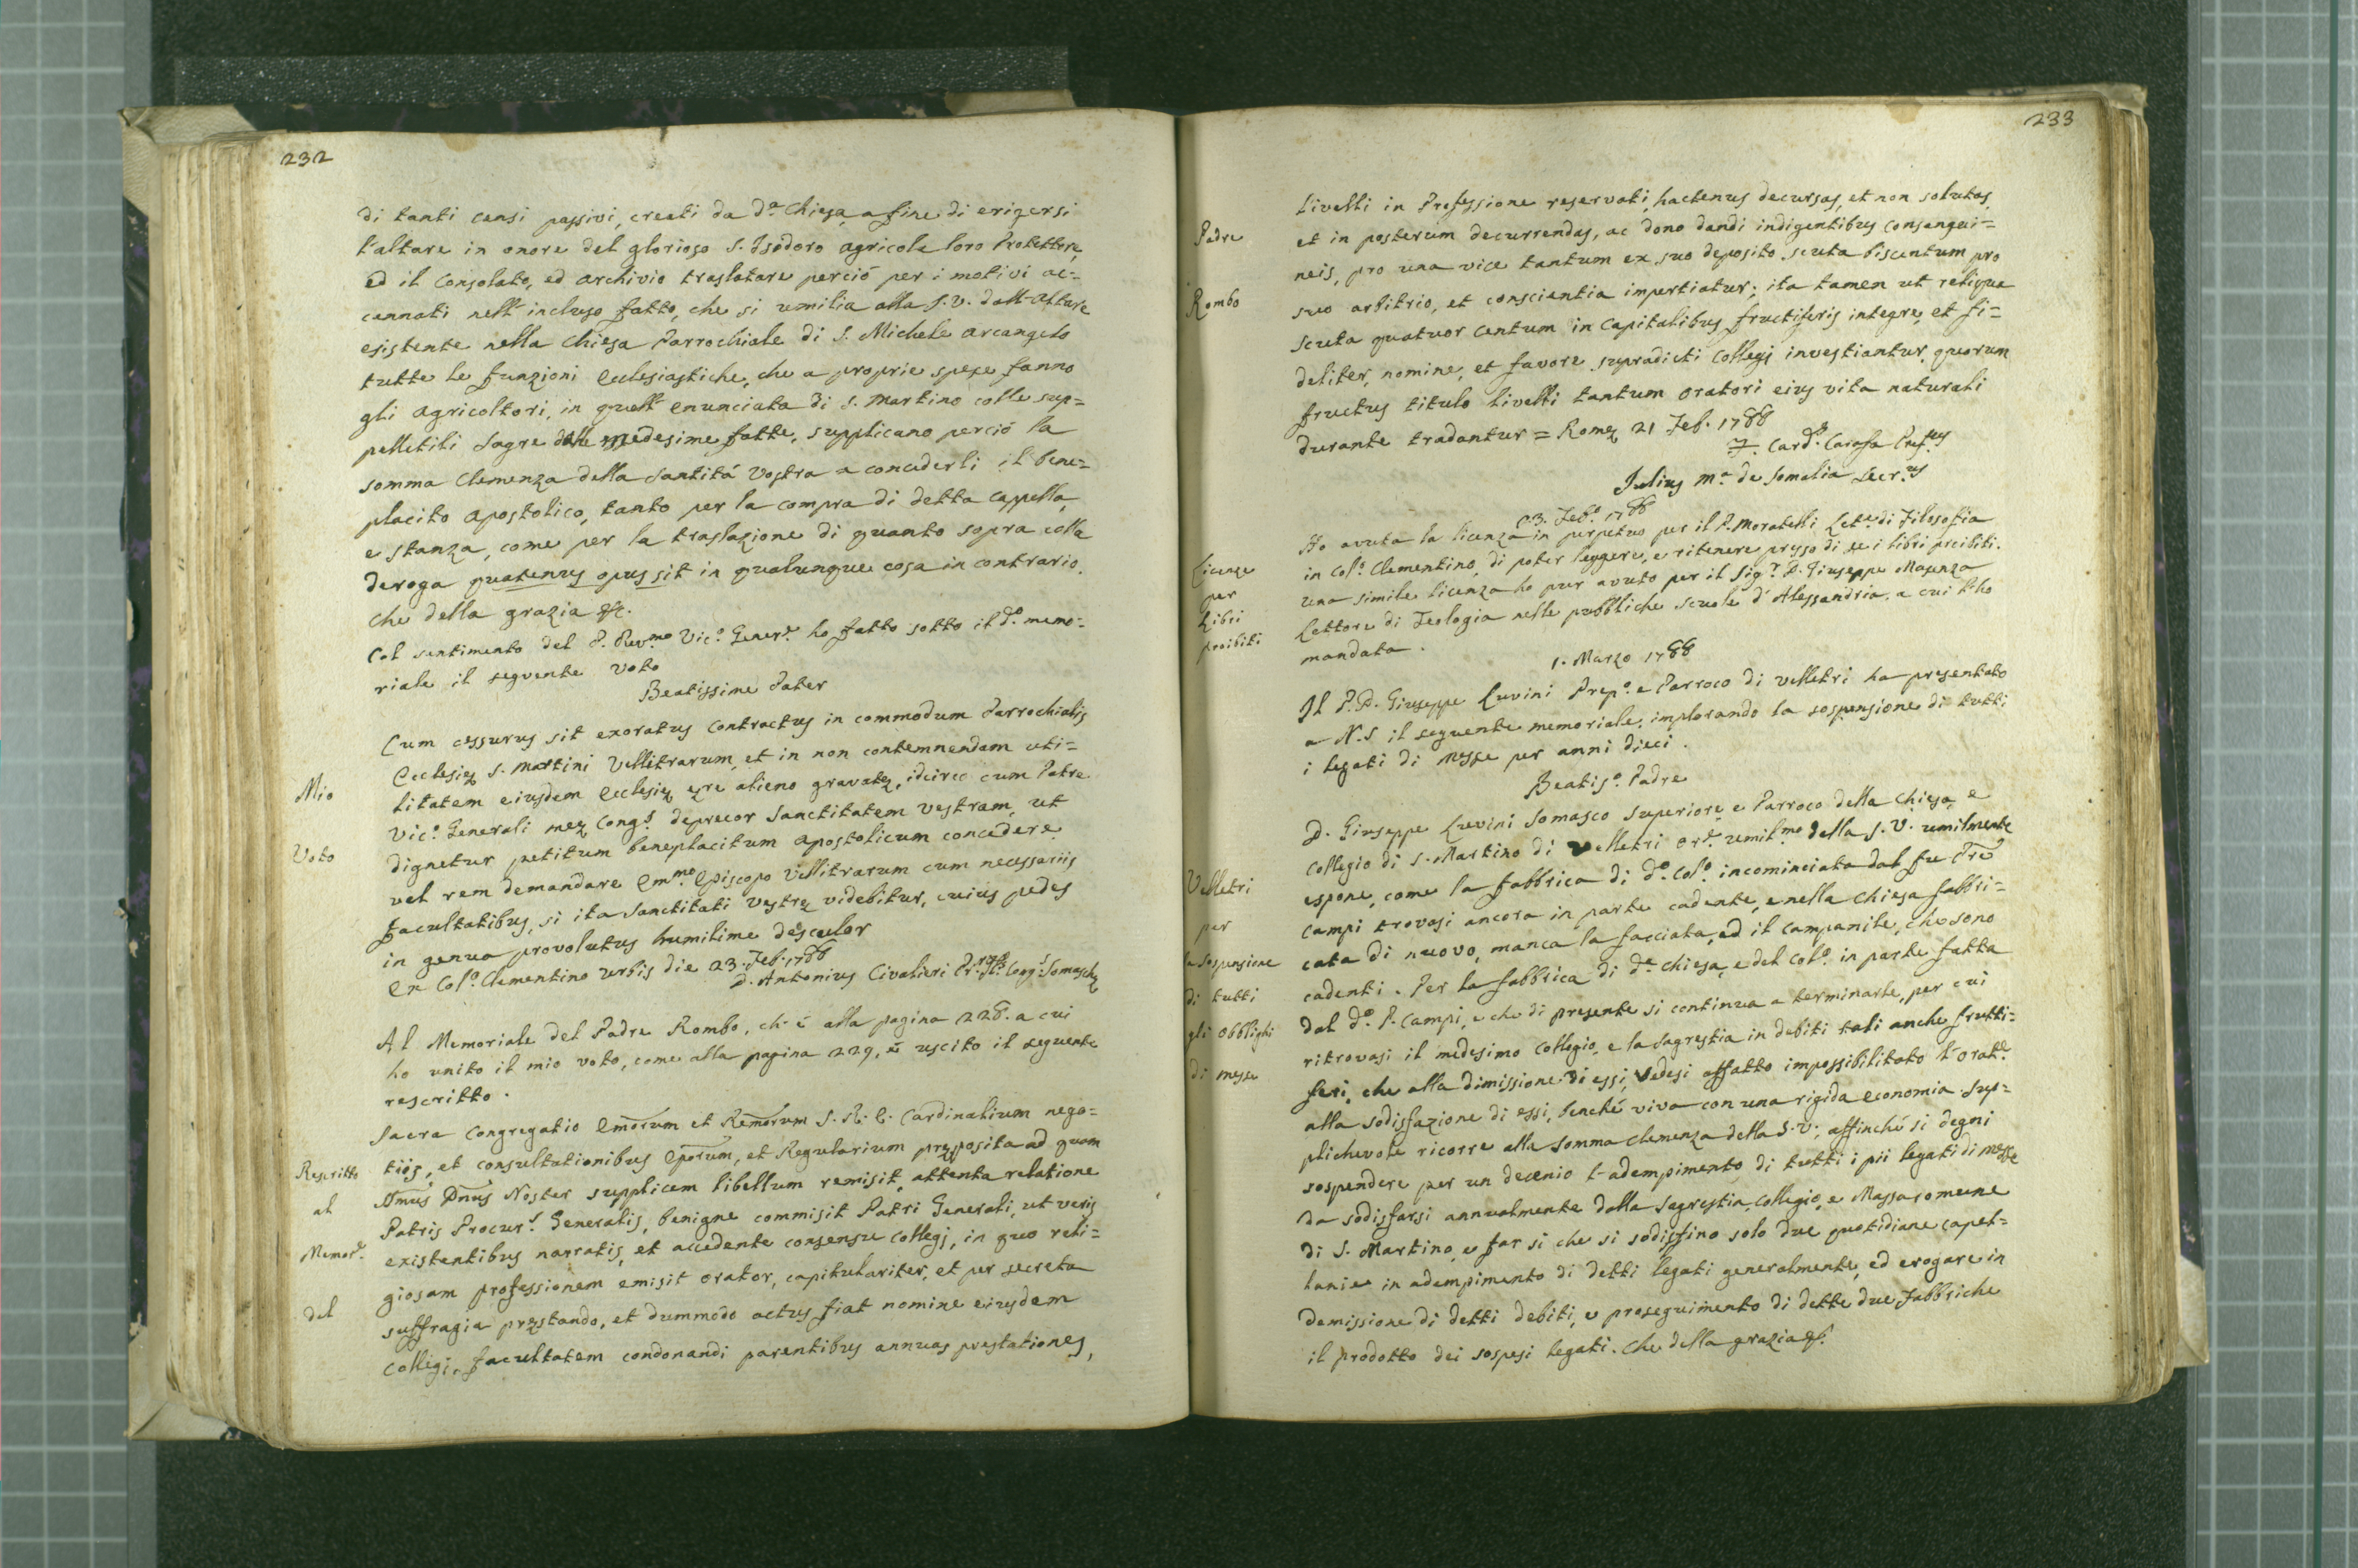 232
di tanti censi passivi, creati da d.ª Chiesa, a fine di erigersi
l'altare in onore del glorioso S. Isodoro agricola loro Protettore,
ed il Consolato, ed archivio traslatare perciò per i motivi ac=
cennati nell'incluso fatto, che si umilia alla S.V. dall'altare
esistente nella Chiesa Parrochiale di S. Michele arcangelo
tutte le funzioni ecclesiastiche, che a proprie spese fanno
gli agricoltori, in quell'enunciata di S. Martino colle sup=
pelletili sagre dalle medesime fatte, supplicano perciò la
somma Clemenza della Santità Vostra a concederli il bene=
placito apostolico, tanto per la compra di detta cappella,
e stanza, come per la traslazione di quanto sopra colla
deroga quatenus opus sit in qualunque cosa in contrario.
che della grazia &c.
Col sentimento del P. Rev.mo Vic.º Gener.e ho fatto sotto il d.º memo=
riale il seguente voto
Beatissime Pater
Cum cessurus sit exoratus contractus in commodum Parrochialis
Ecclesię S. Martini Vellitrarum, et in non contemnendam uti=
Mio
litatem eiusdem Ecclesię ęre alieno gravatę, idcirco cum Patre
Vic.º Generali meę Cong.s deprecor Sanctitatem vestram, ut
Voto
dignetur petitum beneplacitum apostolicum concedere
vel rem demandare Em.mo Episcopo Vellitrarum cum necessariis
facultatibus, si ita Sanctitati vestrę videbitur, cuius pedes
in genua provolutus humilime desculor
Ex Col.º Clementino Urbis die 23. Feb. 1788
D. Antonius Civalieri Pr. Gl. Cong.s Somaschę
Al Memoriale del Padre Rombo, ch'è alla pagina 228. a cui
ho unito il mio voto, come alla pagina 229, è uscito il seguente
rescritto.
Sacra Congregatio Emorum et Remorum S. R. E. Cardinalium nego=
Rescritto
tiis, et consultationibus Eporum, et Regularium pręposita ad quam
al
Smus Dnus Noster supplicem libellum remisit, attenta relatione
Patris Procur.s Generalis, benigne commisit Patri Generali, ut veris
Memor.e
existentibus narratis, et accedente consensu Collegj, in quo reli=
giosam professionem emisit orator, capitulariter, et per secreta
del
suffragia pręstando, et dummodo actus fiat nomine eiusdem
Collegi, facultatem condonandi parentibus annuas prestationes,
233
livelli in Professione reservati, hactenus decursas, et non solutas
Padre
et in posterum decurrendas, ac dono dandi indigentibus consangui=
neis, pro una vice tantum ex suo deposito scuta biscentum pro
Rombo
suo arbitrio, et conscientia impertiatur; ita tamen ut reliqua
scuta quatuor centum in capitalibus fructiferis integre, et fi=
deliter, nomine, et favore supradicti Collegj investiantur, quorum
fructus titulo livelli tantum oratori eius vita naturali
durante tradantur = Romę 21 Feb. 1788
F. Card. Carafa Pref.us
Julius M.ª de Somalia Secr.us
23. Feb.º 1788
Ho avuta la licenza in perpetuo per il P. Moratelli Let.e di Filosofia
Licenze
in Col.º Clementino, di poter leggere, e ritenere presso di se i libri proibiti.
per
una simile licenza ho pur avuto per il Sig.r D. Giuseppe Masenza
Libri
Lettore di Teologia nelle pubbliche scuole d'Alessandria, a cui l'ho
proibiti
mandata.
1. Marzo 1788
Il P.D. Giuseppe Luvini Prep.º e Parroco di Velletri ha presentato
a N.S il seguente memoriale, implorando la sospensione di tutti
i legati di Messe per anni dieci.
Beatis.º Padre
D. Giuseppe Luvini Somasco Superiore e Parroco della Chiesa, e
Collegio di S. Martino di Velletri or.e umil.mo della S.V. umilmente
Velletri
espone, come la fabbrica di d.º Col.º incominciata dal fu Pre
per
Campi trovasi ancora in parte cadente, e nella Chiesa fabbri=
la sospensione
cata di nuovo, manca la facciata, ed il campanile, che sono
di tutti
cadenti. Per la fabbrica di d.ª Chiesa, e del Col.º in parte fatta
gli obblighi
dal d.º P. Campi, e che di presente si continua a terminarle, per cui
di messe
ritrovasi il medesimo Collegio, e la Sagrestia in debiti tali anche frutti=
feri, che alla dimissione di essi, vedesi affatto impossibilitato l'orat.e
alla sodisfazione di essi, benché viva con una rigida economia. Sup=
plichevole ricorre alla somma clemenza della S.V., affinché si degni
sospendere per un decenio l'adempimento di tutti i pii legati di Messe
da sodisfarsi annualmente dalla Sagrestia, Collegio, e Massa comune
di S. Martino, e far si che si sodisfino solo due quotidiane capel=
lanie in adempimento di detti legati generalmente, ed erogare in
demissione di detti debiti, e proseguimento di dette due fabbriche
il prodotto dei sospesi legati. Che della grazia &c.